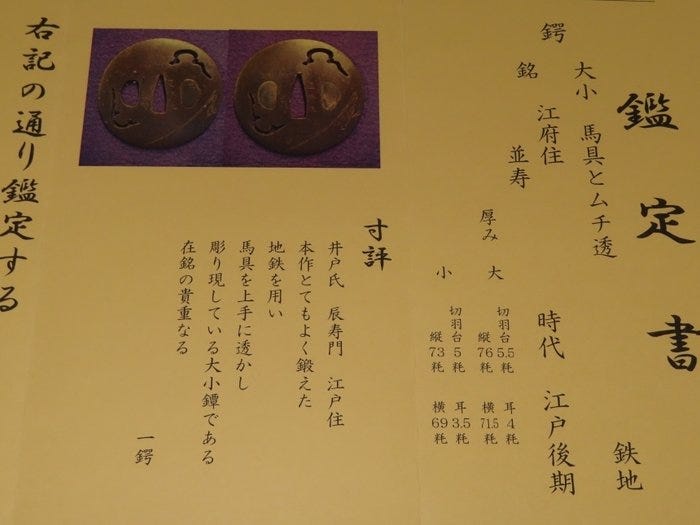 鑑定書
鉄地
大小 馬具とムチ透
鍔
銘 江府住
並寿
時代 江戸後期
厚み
大
切羽台5.5粍 耳4粍
縦76粍 横71.5粍
小
切羽台5粍 耳3.5粍
縦73粍 横69粍
寸評
井戸氏 辰寿門 江戸住
本作とてもよく鍛えた
地鉄を用い
馬具を上手に透かし
彫り現している大小鐔である
在銘の貴重なる
一鍔
右記の通り鑑定する